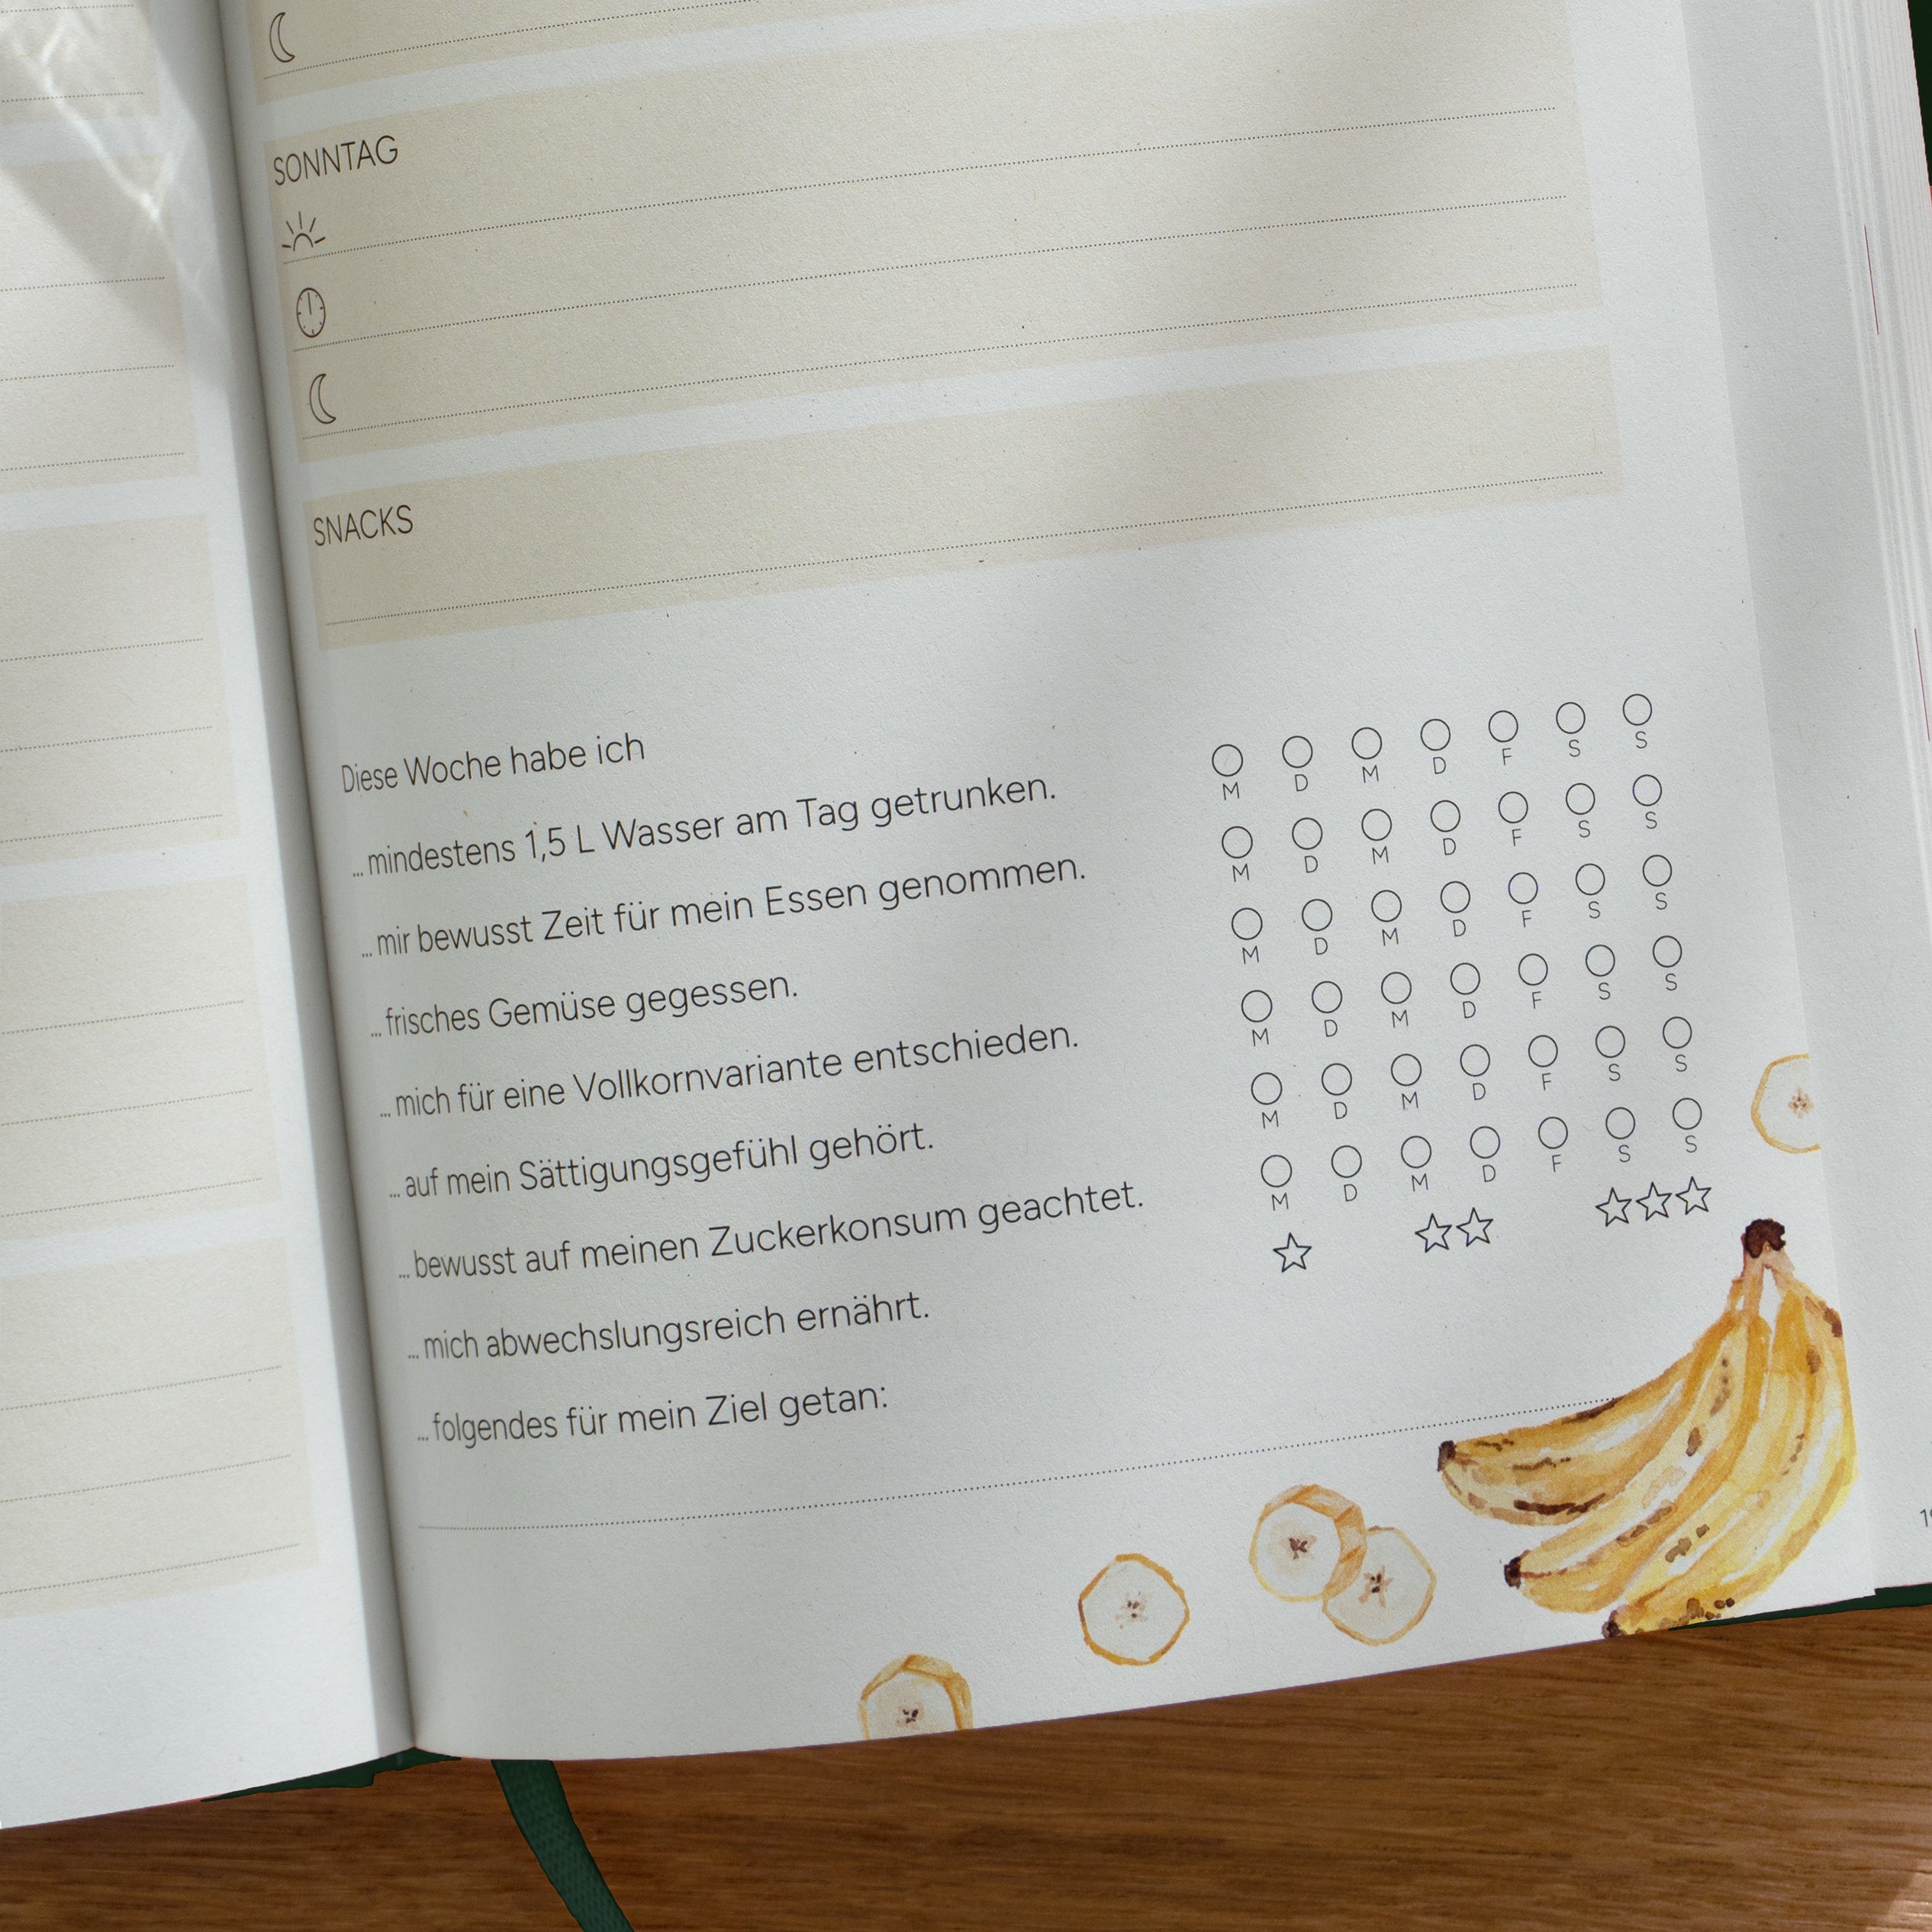 SONNTAG
SNACKS
Diese Woche habe ich
... mindestens 1,5 L Wasser am Tag getrunken. M D M D F S S
... mir bewusst Zeit für mein Essen genommen. M D M D F S S
... frisches Gemüse gegessen. M D M D F S S
... mich für eine Vollkornvariante entschieden. M D M D F S S
... auf mein Sättigungsgefühl gehört. M D M D F S S
... bewusst auf meinen Zuckerkonsum geachtet. M D M D F S S
... mich abwechslungsreich ernährt.
... folgendes für mein Ziel getan: